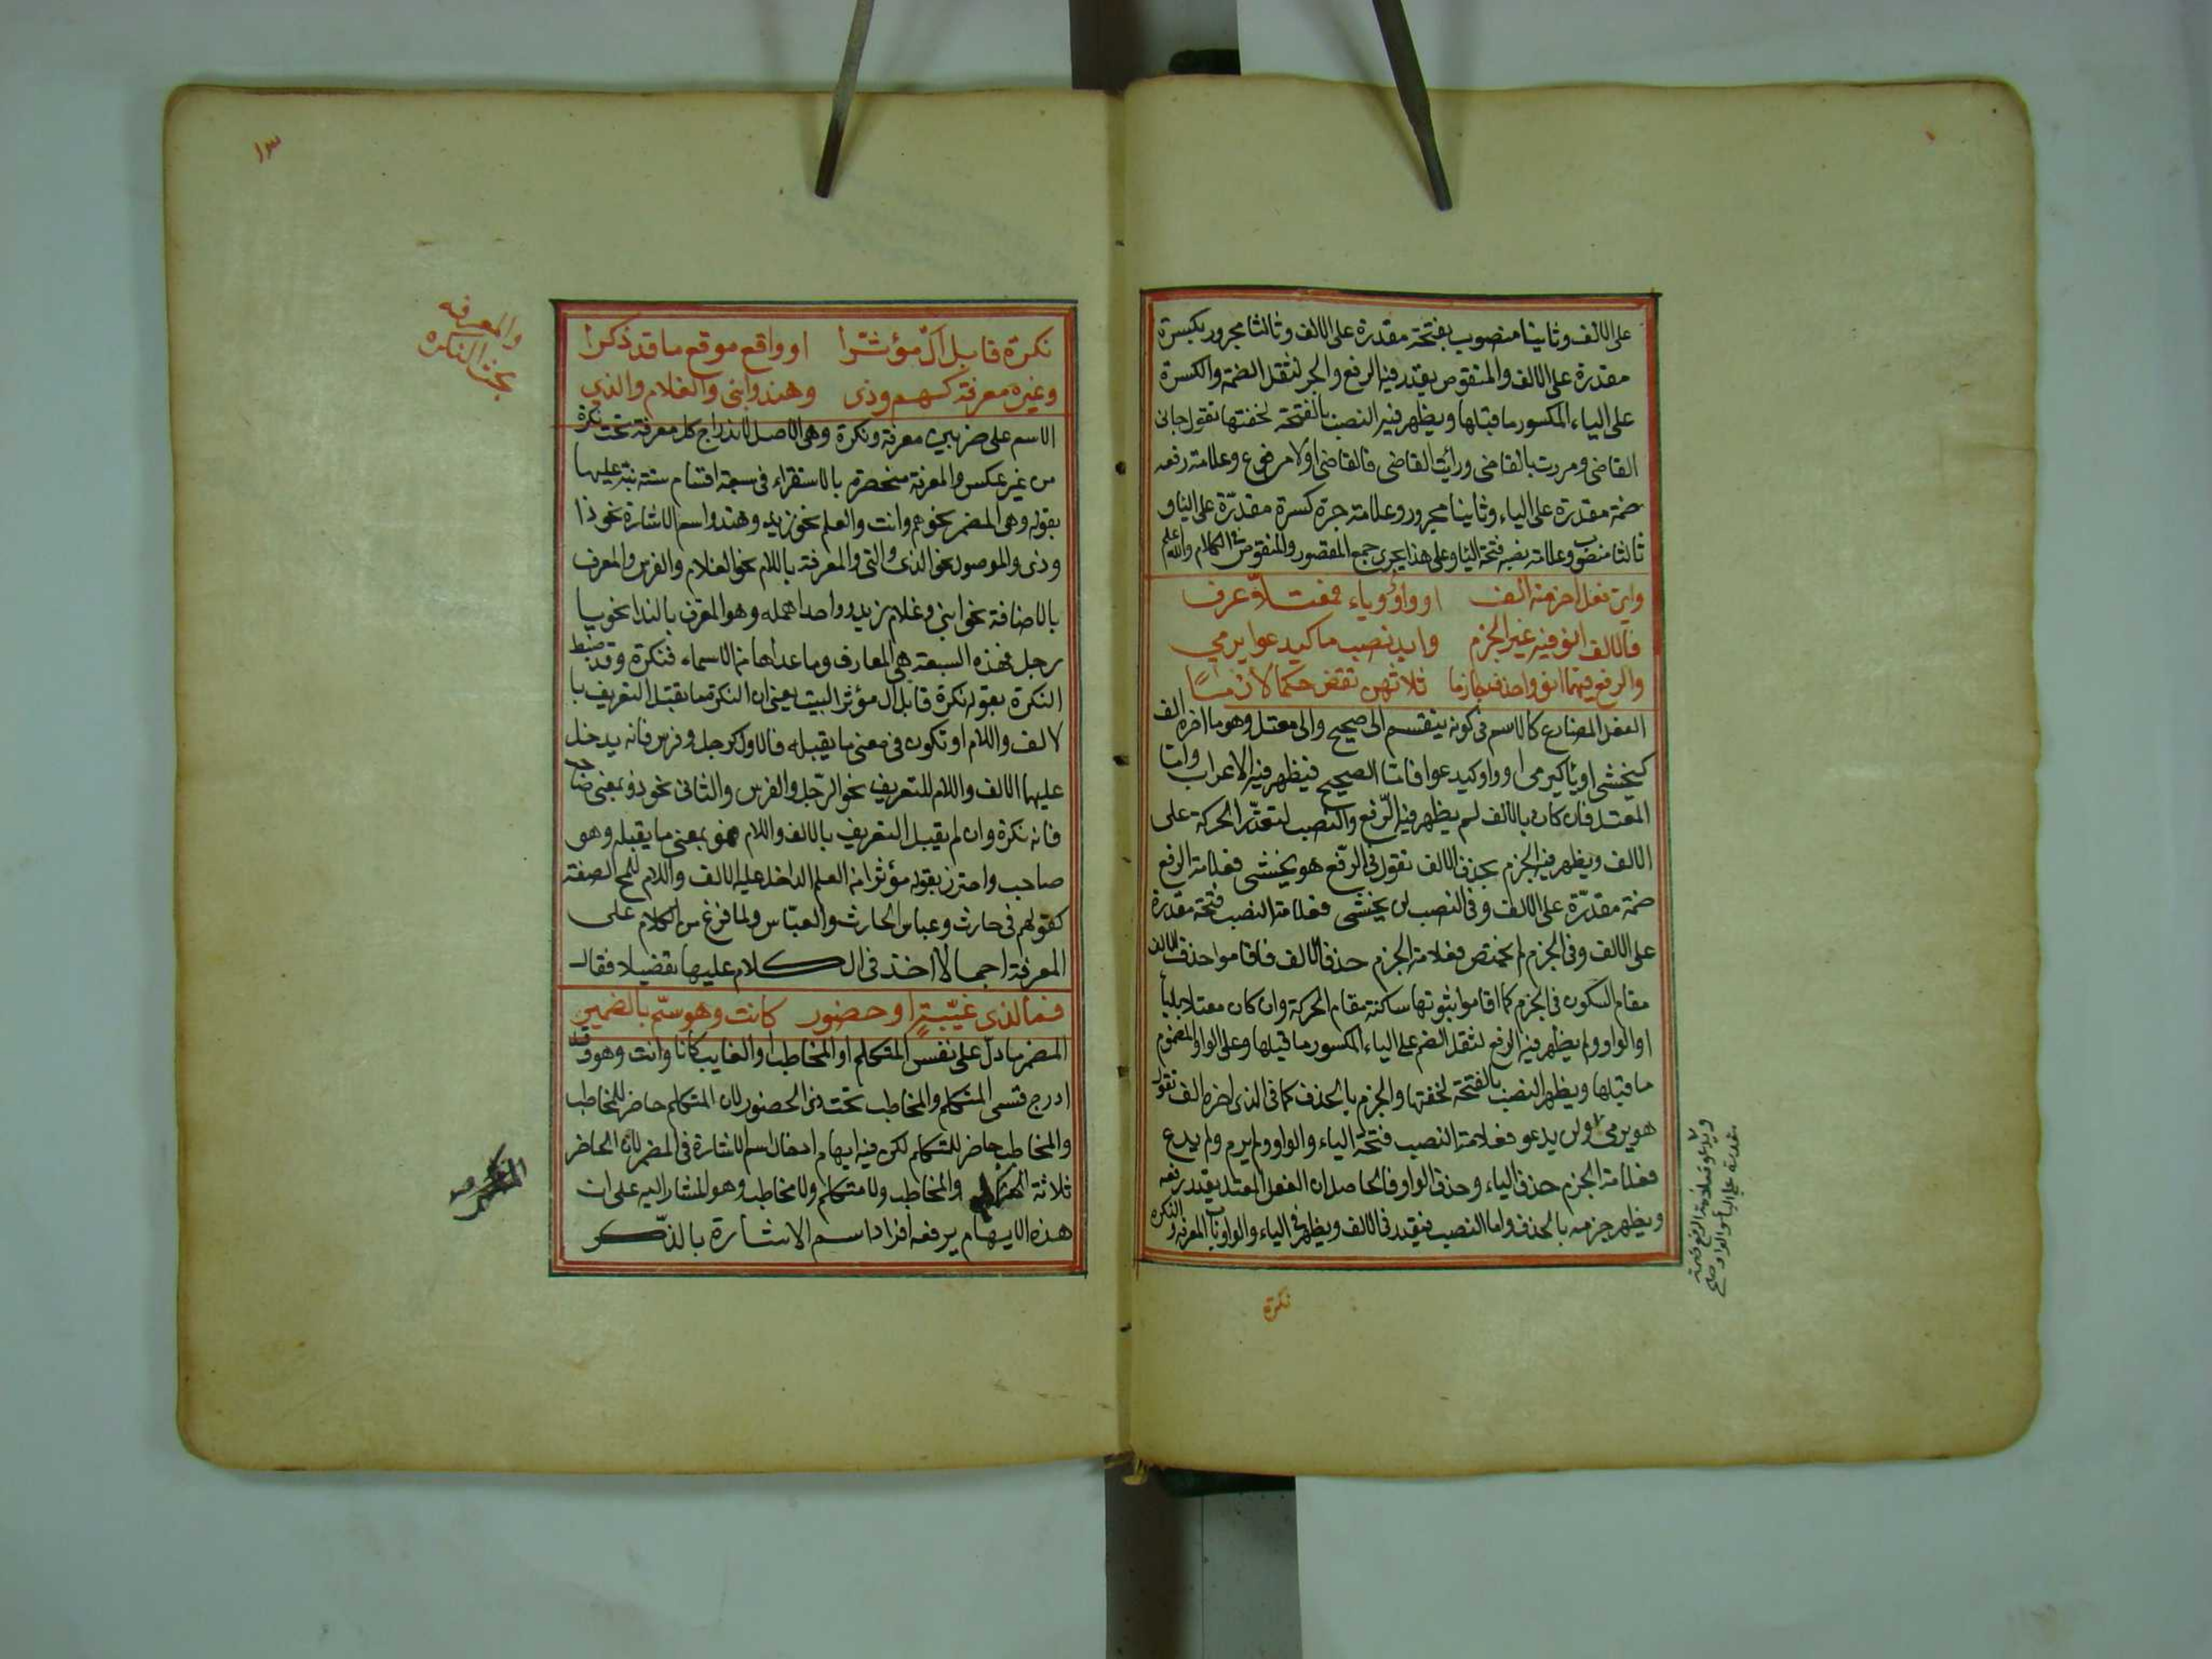 على الالف وثانيا منصوب بفتحة مقدرة على الالف وثالثا مجرور بكسرة
مقدرة على الالف والمنقوص يقدر فيه الرفع والجر لثقل الضمة والكسرة
على الياء المكسور ما قبلها ويظهر فيه النصب بالفتحة لخفتها تقول جانى
القاضى ومررت بالقاضى ورأيت القاضى فالقاضى اولا مرفوع وعلامة رفعه
ضمة مقدرة على الياء وثانيا مجرور وعلامة جره كسرة مقدرة على اليا و
ثالثا منصوب وعلامة نصبه فتحة اليا وعلى هذا يجرى جمع المقصور والمنقوص فى الكلام والله اعلم
واى فعل اخر منه الف او واو او ياء فمعتلا عرف
فالالف انو فيه غير الجزم وابد نصب ما كيدعو يرمي
والرفع فيهما انو واحذف جازما ثلاثهن تقض حكما لازما
الفعل المضارع كالاسم فى كونه ينقسم الى صحيح والى معتل وهو ما اخره الف
كيخشى او يا كيرمى او واو كيدعو فاما الصحيح فيظهر فيه الاعراب واما
المعتل فان كان بالالف لم يظهر فيه الرفع والنصب لتعذر الحركة على
الالف ويظهر فيه الجزم بحذف الالف تقول فى الرفع هو يخشى فعلامة الرفع
ضمة مقدرة على الالف وفى النصب لن يخشى فعلامة النصب فتحة مقدرة
على الالف وفى الجزم لم يخش فعلامة الجزم حذف الالف فاقاموا حذف الالف
مقام السكون فى الجزم كما اقاموا ثبوتها ساكنة مقام الحركة وان كان معتلا بالياء
او الواو ولم يظهر فيه الرفع لثقل الضم على الياء المكسور ما قبلها وعلى الواو المضموم
ما قبلها ويظهر النصب بالفتحة لخفتها والجزم بالحذف كما فى الذى اخره الف تقول
هو يرمى ولن يدعو فعلامة النصب فتحة الياء والواو ولم يرم ولم يدع
فعلامة الجزم حذف الياء وحذف الواو فالحاصل ان الفعل المعتل يقدر رفعه
ويظهر جزمه بالحذف واما النصب فيقدر فى الالف ويظهر فى الياء والواو باب المعرفة والنكرة
ويدعو فعلامة الرفع ضمة
مقدرة على الياء والواو صح
نكرة
١٣
والمعرفه
بحث النكره
نكرة قابل ال مؤثرا او واقع موقع ما قد ذكرا
وغيره معرفة كهم وذى وهند وابنى والغلام والذي
الاسم على ضربين معرفة ونكرة وهى الاصل لاندراج كل معرفة تحت نكرة
من غير عكس والمعرفة منحصرة بالاستقراء فى سبعة اقسام ستة نبه عليها
بقوله وهى المضمر نحو هم وانت والعلم نحو زيد وهند واسم الاشارة نحو ذا
وذى والموصول نحو الذى والتى والمعرفة باللام نحو الغلام والفرس والمعرف
بالاضافة نحو ابنى وغلام زيد وواحدا اهمله وهو المعرف بالندا نحو يا
رجل فهذه السبعة هى المعارف وما عداها من الاسماء فنكرة وقد ضبط
النكرة بقوله نكرة قابل ال مؤثرا البيت يعنى ان النكرة ما يقبل التعريف با
لالف واللام او تكون فى معنى ما يقبله فالاول كرجل وفرس فانه يدخل
عليهما الالف واللام للتعريف نحو الرجل والفرس والثانى نحو ذو بمعنى صاحب
فانه نكرة وان لم يقبل التعريف بالالف واللام فهو بمعنى ما يقبله وهو
صاحب واحترز بقوله مؤثرا من العلم الداخل عليه الالف واللام للمح الصفة
كقولهم فى حارث وعباس الحارث والعباس ولما فرغ من الكلام على
المعرفة اجمالا اخذ فى الكلام عليها تفصيلا فقال
فما لذى غيبة او حضور كانت وهو سم بالضمير
المضمر ما دل على نفس المتكلم او المخاطب او الغايب كانا وانت وهو وقد
ادرج قسمى المتكلم والمخاطب تحت ذى الحضور لان المتكلم حاضر للمخاطب
والمخاطب حاضر للمتكلم لكن فيه ايهام ادخال اسم الاشارة فى المضمر لان الحاضر
ثلاثة والمخاطب ولا متكلم ولا مخاطب وهو المشار اليه على ان
هذه الايهام يرفعه افراد اسم الاشارة بالذكر